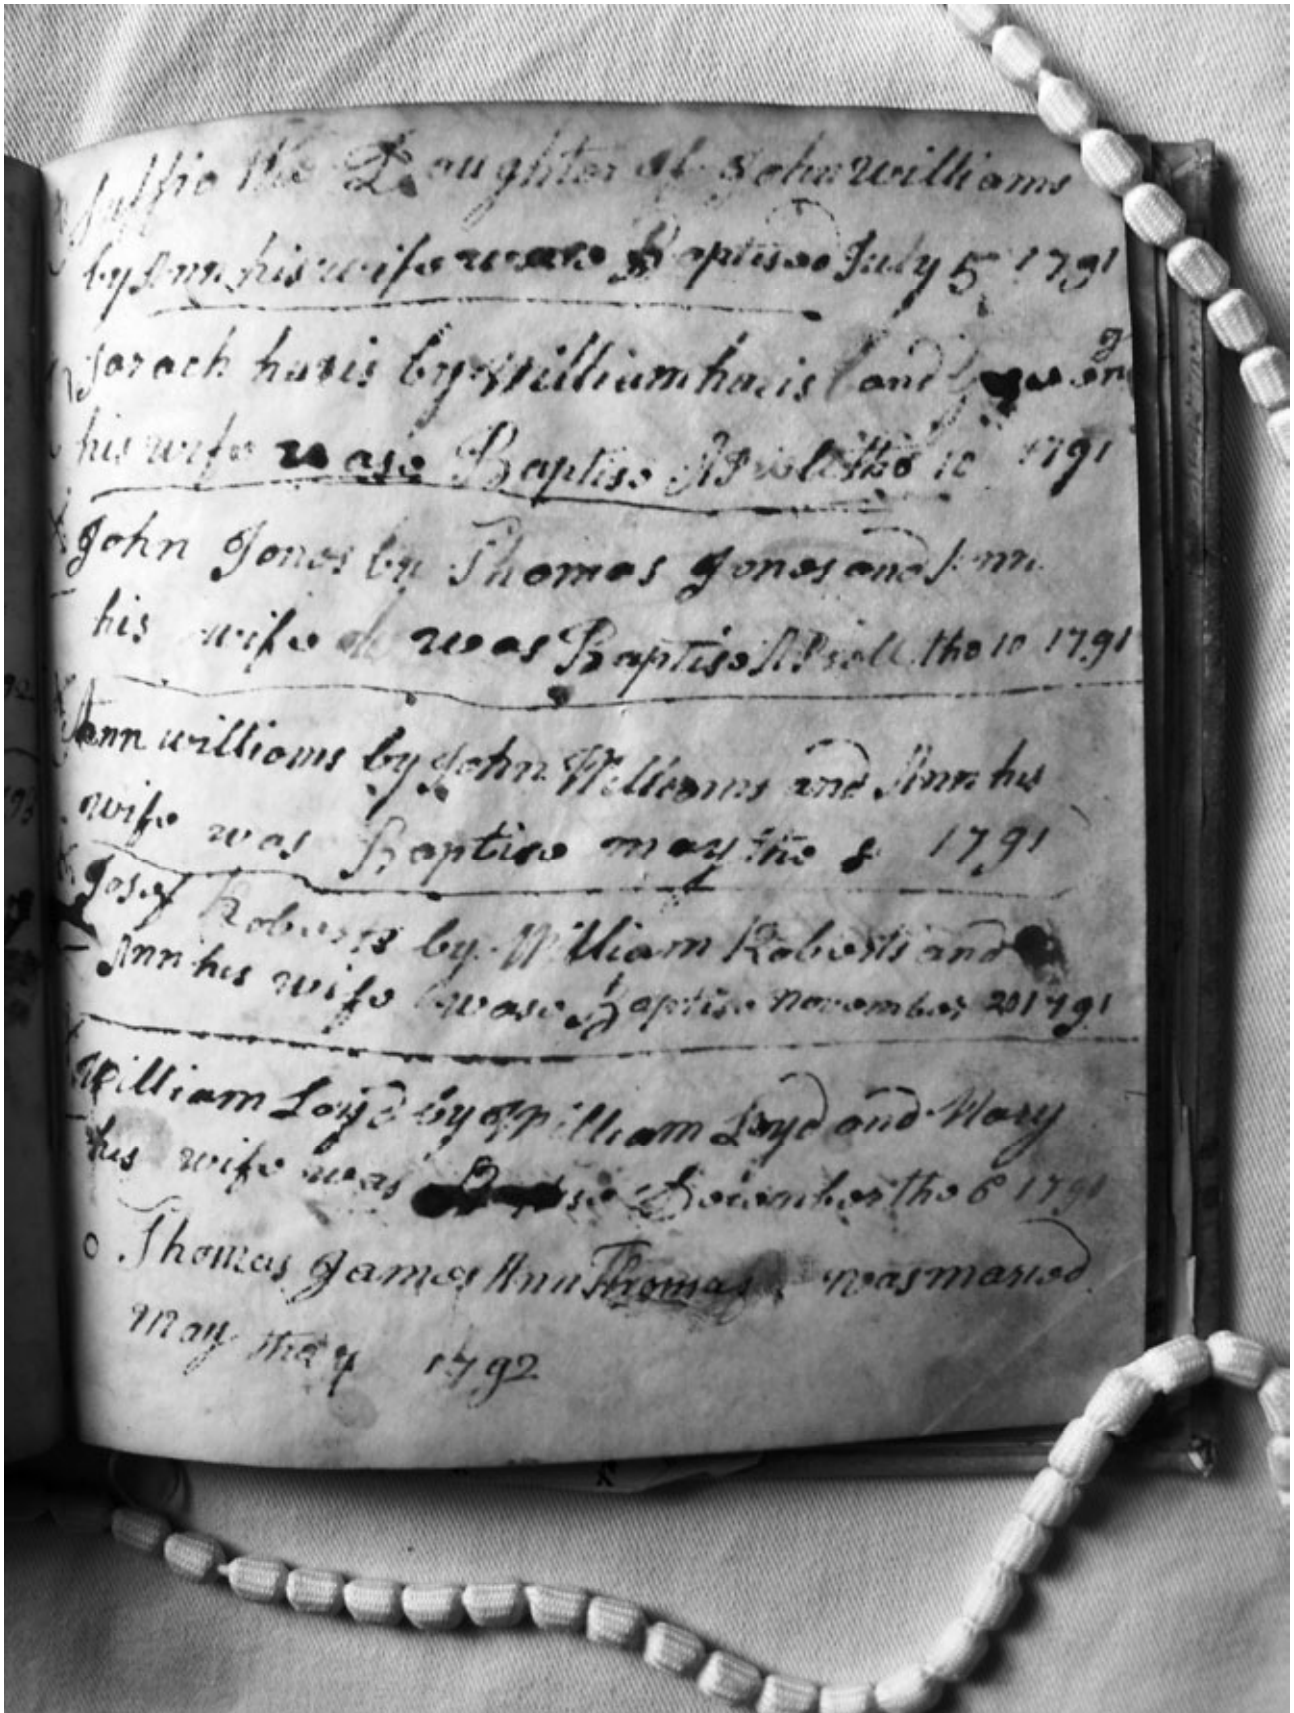 the Daughter of John Williams
by Ann his wife wase Baptised July 5 1791
Sarach haris by William haris and
his wife wase Baptise the 10 1791
John Jones by Thomas Jones and Ann
his wife was Baptise the 10 1791
Ann williams by John Williams and Ann his
wife was Baptise may the 8 1791
Josef Roberts by William Roberts and
Ann his wife wase Baptise November 20 1791
William Loyd by William Loyd and Mary
his wife was the 6 1791
Thomas James Ann Thomas was maried
May 1792